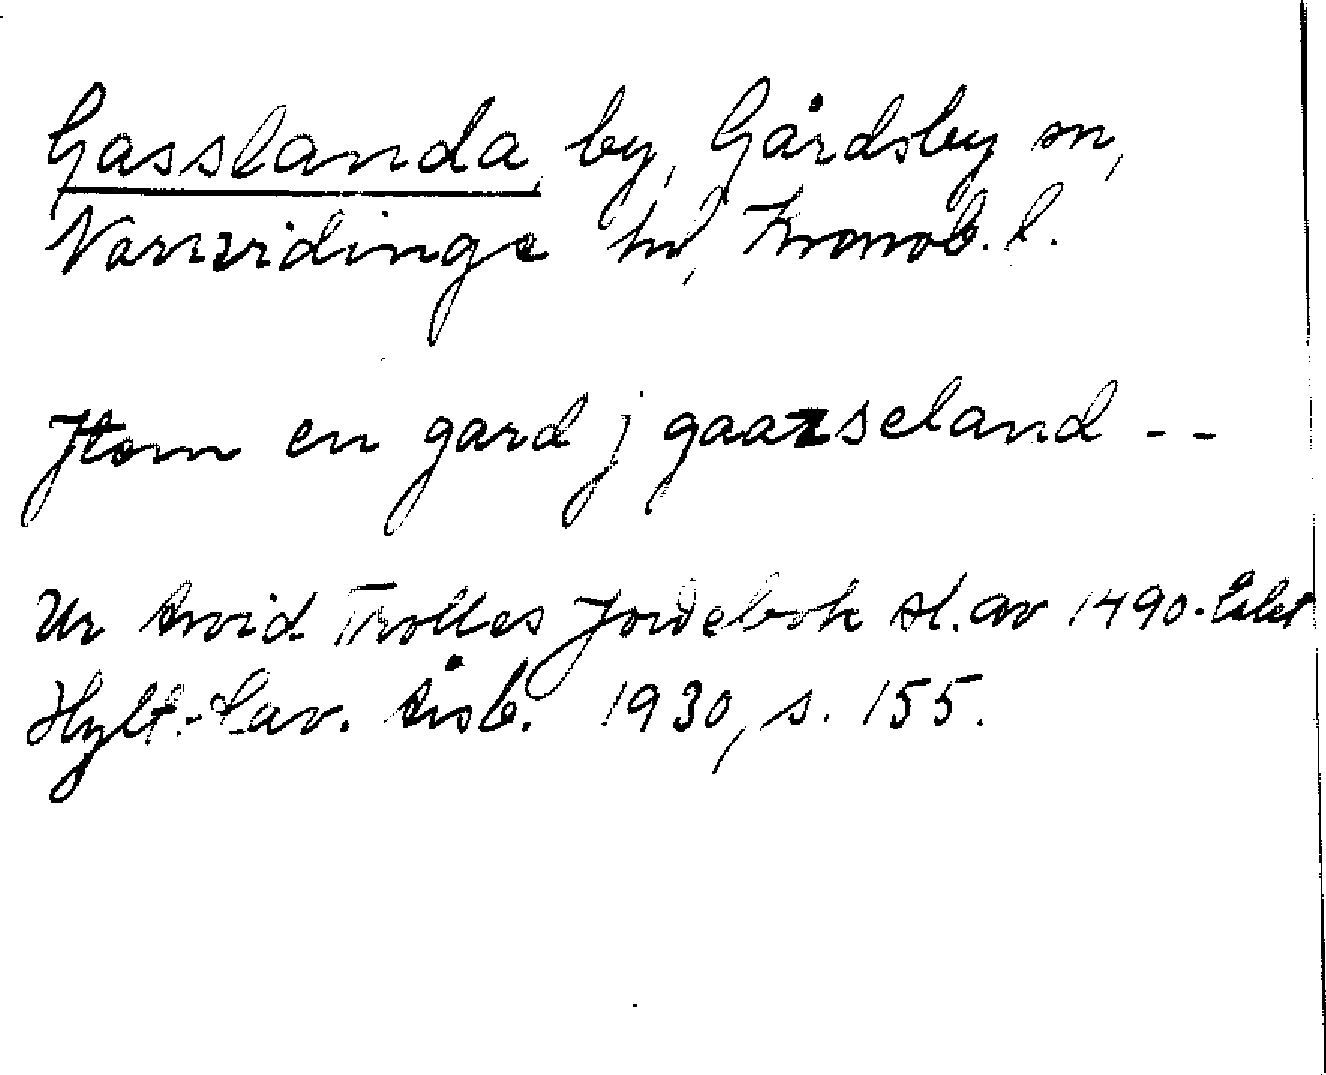 Gasslanda, by, Gårdsby sn,
Norrvidinge hd, Kronob. l.
Jtem en gard j gaarseland --
Ur Arvid Trolles Jordebok sl. av 1490-talet
Hylt.-Cav. Årsb. 1930, s. 155.